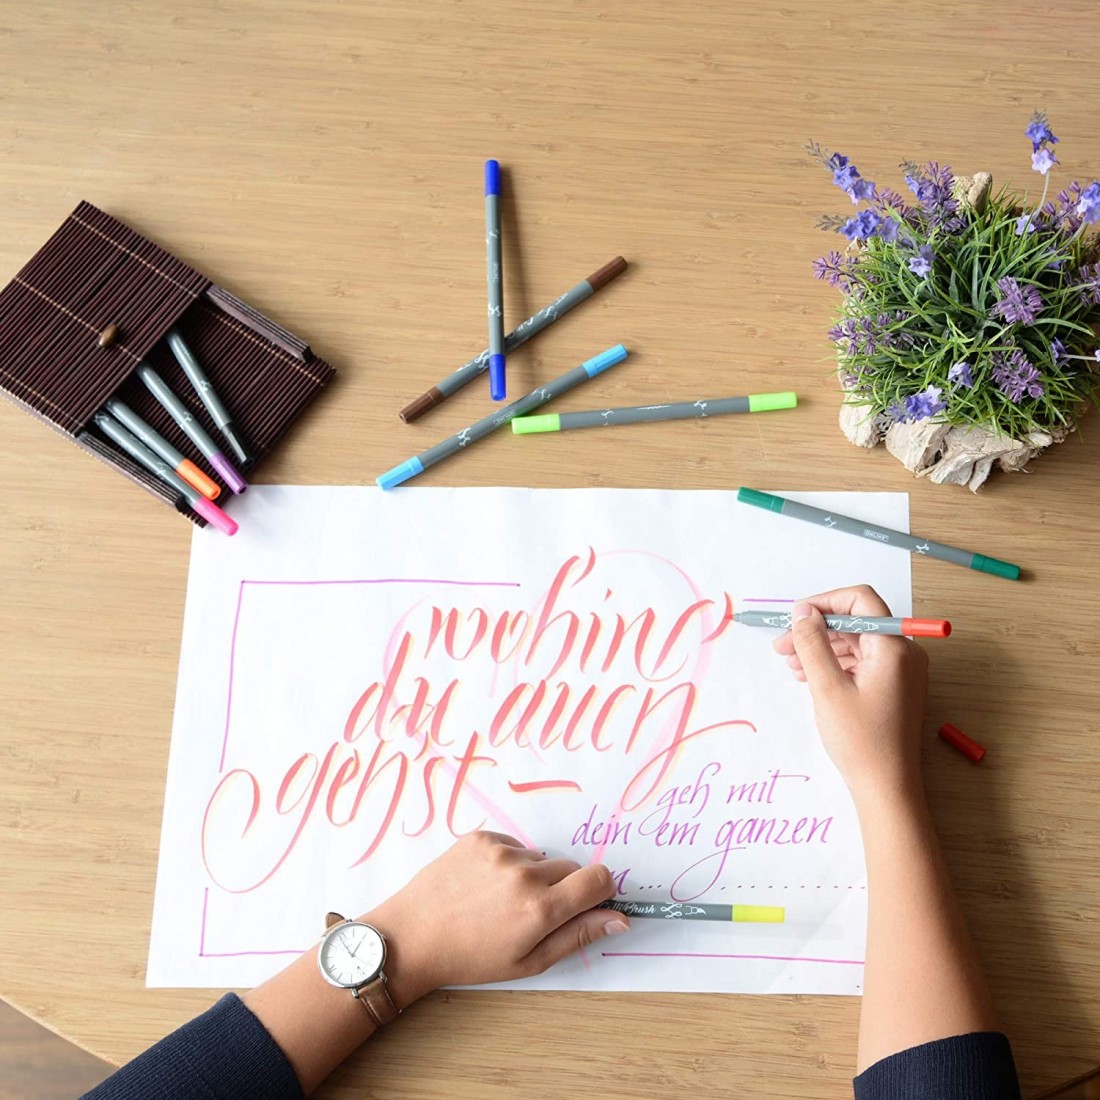 wohin
du auch
gehst —
geh mit
deinem ganzen
...
ONLINE